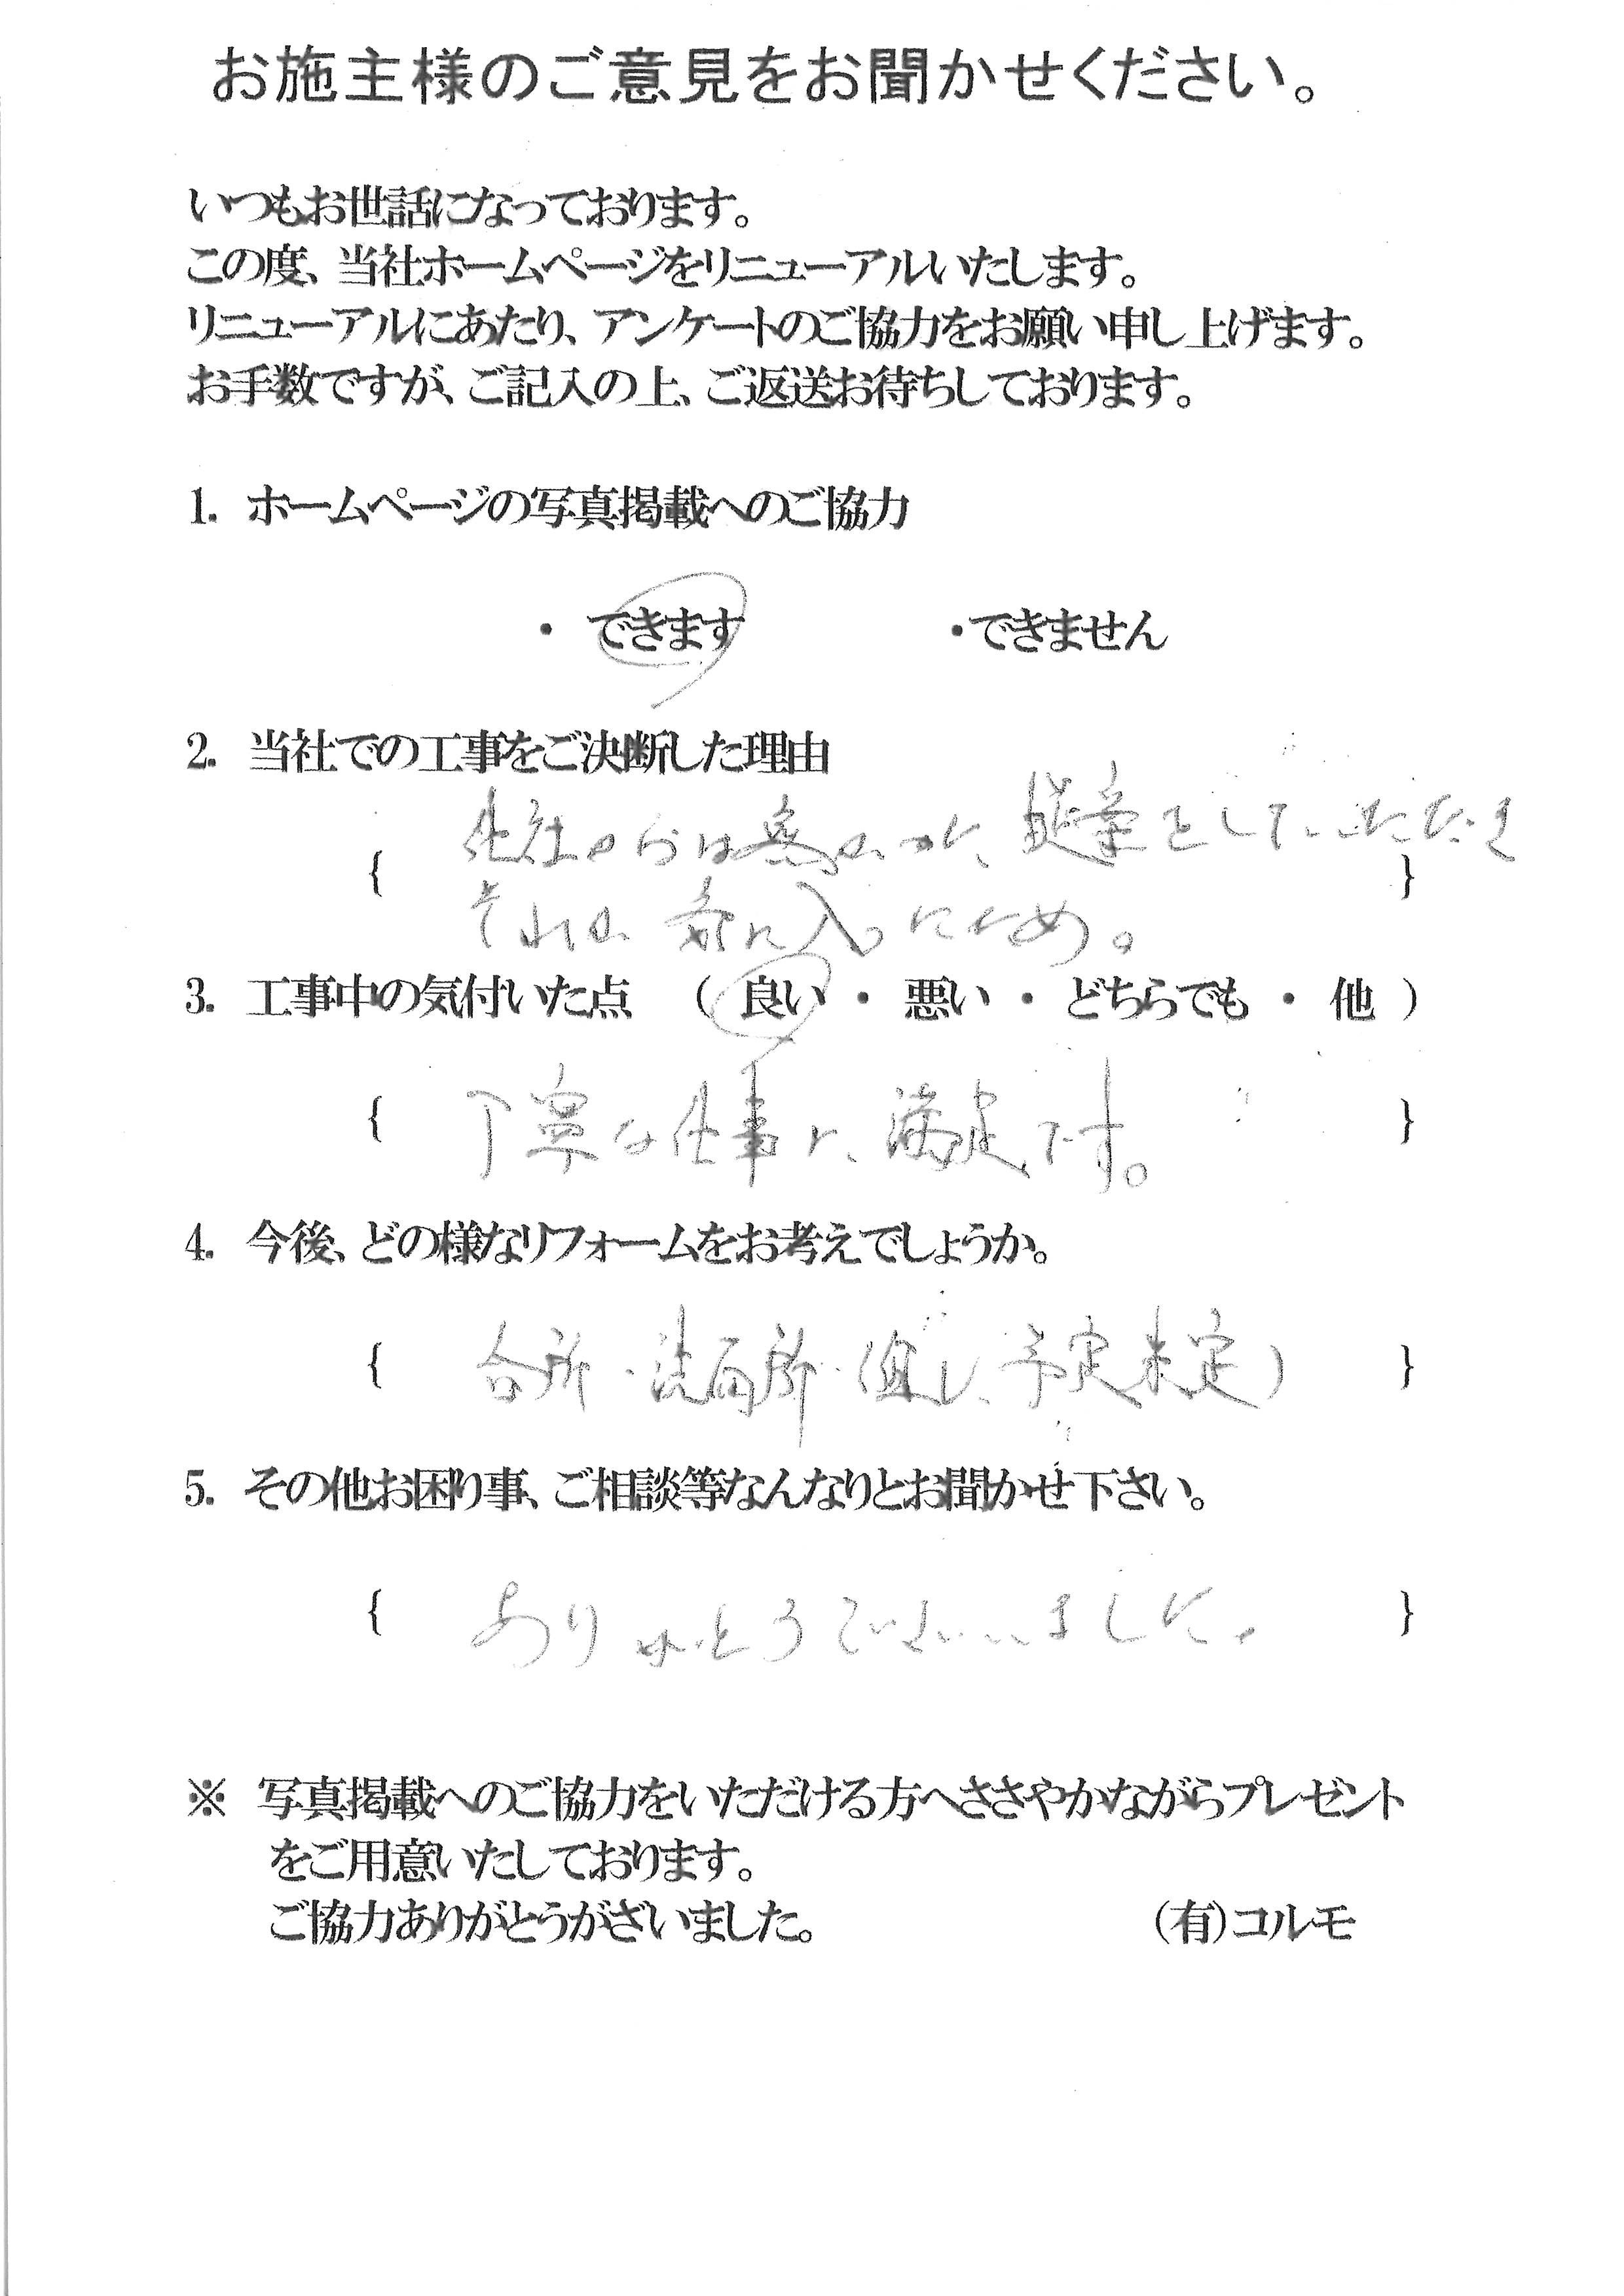 お施主様のご意見をお聞かせください。
いつもお世話になっております。
この度、当社ホームページをリニューアルいたします。
リニューアルにあたり、アンケートのご協力をお願い申し上げます。
お手数ですが、ご記入の上、ご返送お待ちしております。
1. ホームページの写真掲載へのご協力
・ できます ・できません
2. 当社での工事をご決断した理由
{ 他社からは無かった、提案をしていただき }
それが気に入ったため。
3. 工事中の気付いた点 ( 良い ・ 悪い ・ どちらでも ・ 他 )
{ 丁寧な仕事で、満足です。 }
4. 今後、どの様なリフォームをお考えでしょうか。
{ 台所・洗面所・(但し、予定未定) }
5. その他お困り事、ご相談等なんなりとお聞かせ下さい。
{ ありがとうございました。 }
※ 写真掲載へのご協力をいただける方へささやかながらプレゼント
をご用意いたしております。
ご協力ありがとうがざいました。 (有)コルモ